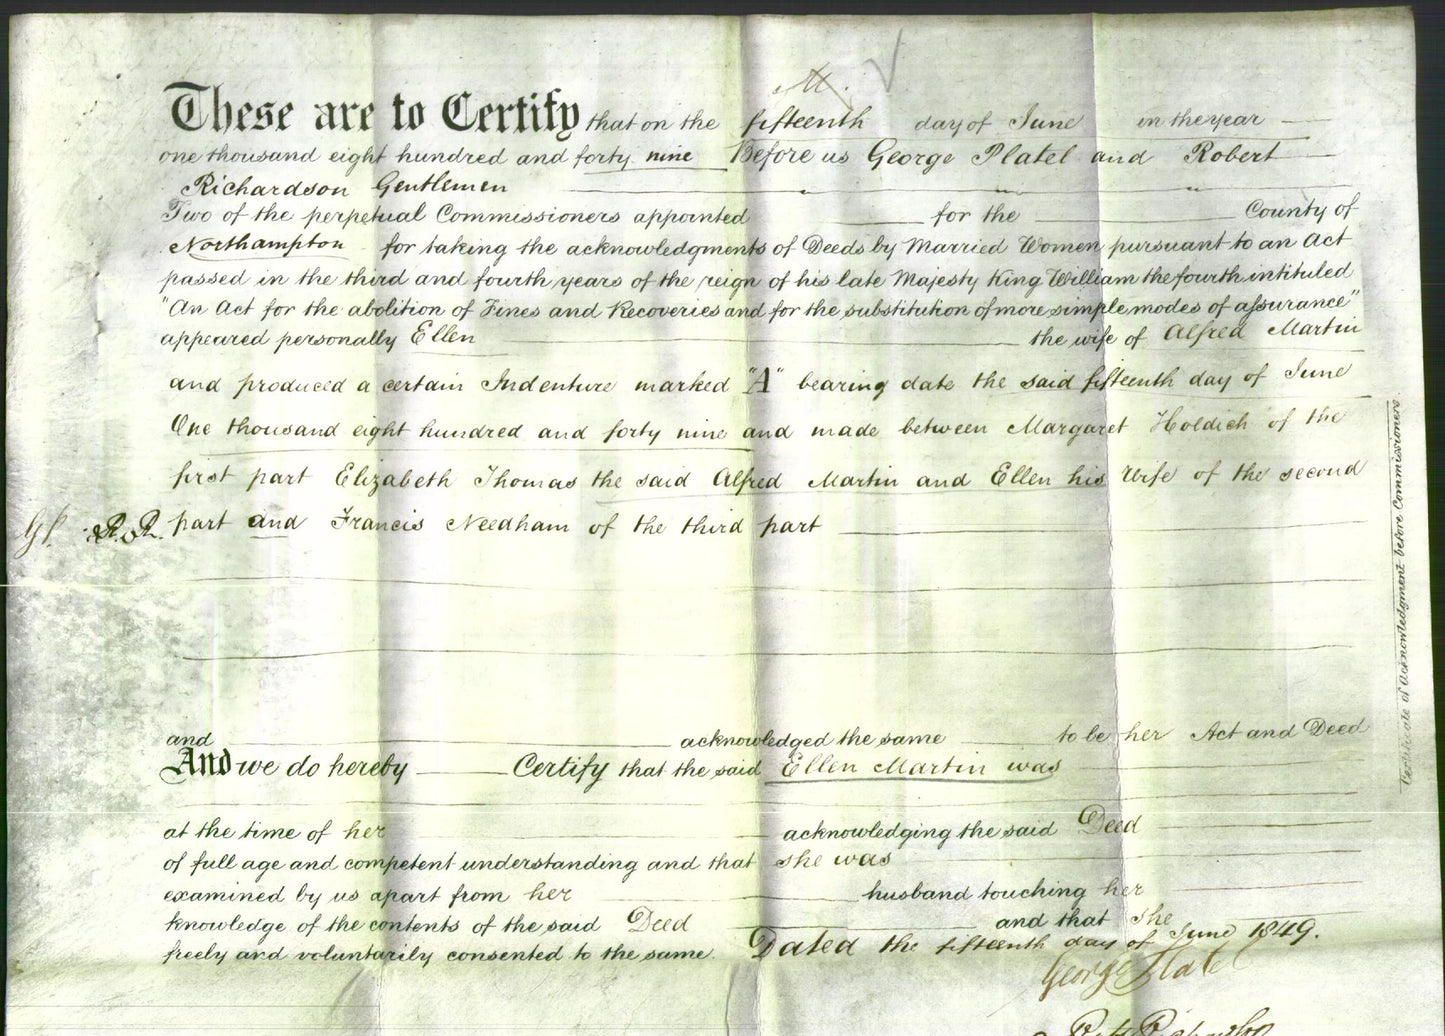 M.
These are to Certify that on the fifteenth day of June in the year
one thousand eight hundred and forty nine Before us George Platel and Robert
Richardson Gentlemen
Two of the perpetual Commissioners appointed for the County of
Northampton for taking the acknowledgments of Deeds by Married Women pursuant to an Act
passed in the third and fourth years of the reign of his late Majesty King William the fourth intituled
"An Act for the abolition of Fines and Recoveries and for the substitution of more simple modes of assurance"
appeared personally Ellen the wife of Alfred Martin
and produced a certain Indenture marked "A" bearing date the said fifteenth day of June
One thousand eight hundred and forty nine and made between Margaret Holdich of the
first part Elizabeth Thomas the said Alfred Martin and Ellen his Wife of the second
G.P. R.R. part and Francis Needham of the third part
and acknowledged the same to be her Act and Deed
And we do hereby Certify that the said Ellen Martin was
at the time of her acknowledging the said Deed
of full age and competent understanding and that she was
examined by us apart from her husband touching her
knowledge of the contents of the said Deed and that she
freely and voluntarily consented to the same. Dated the fifteenth day of June 1849.
George Platel
Robt Richardson
Certificate of Acknowledgment before Commissioners